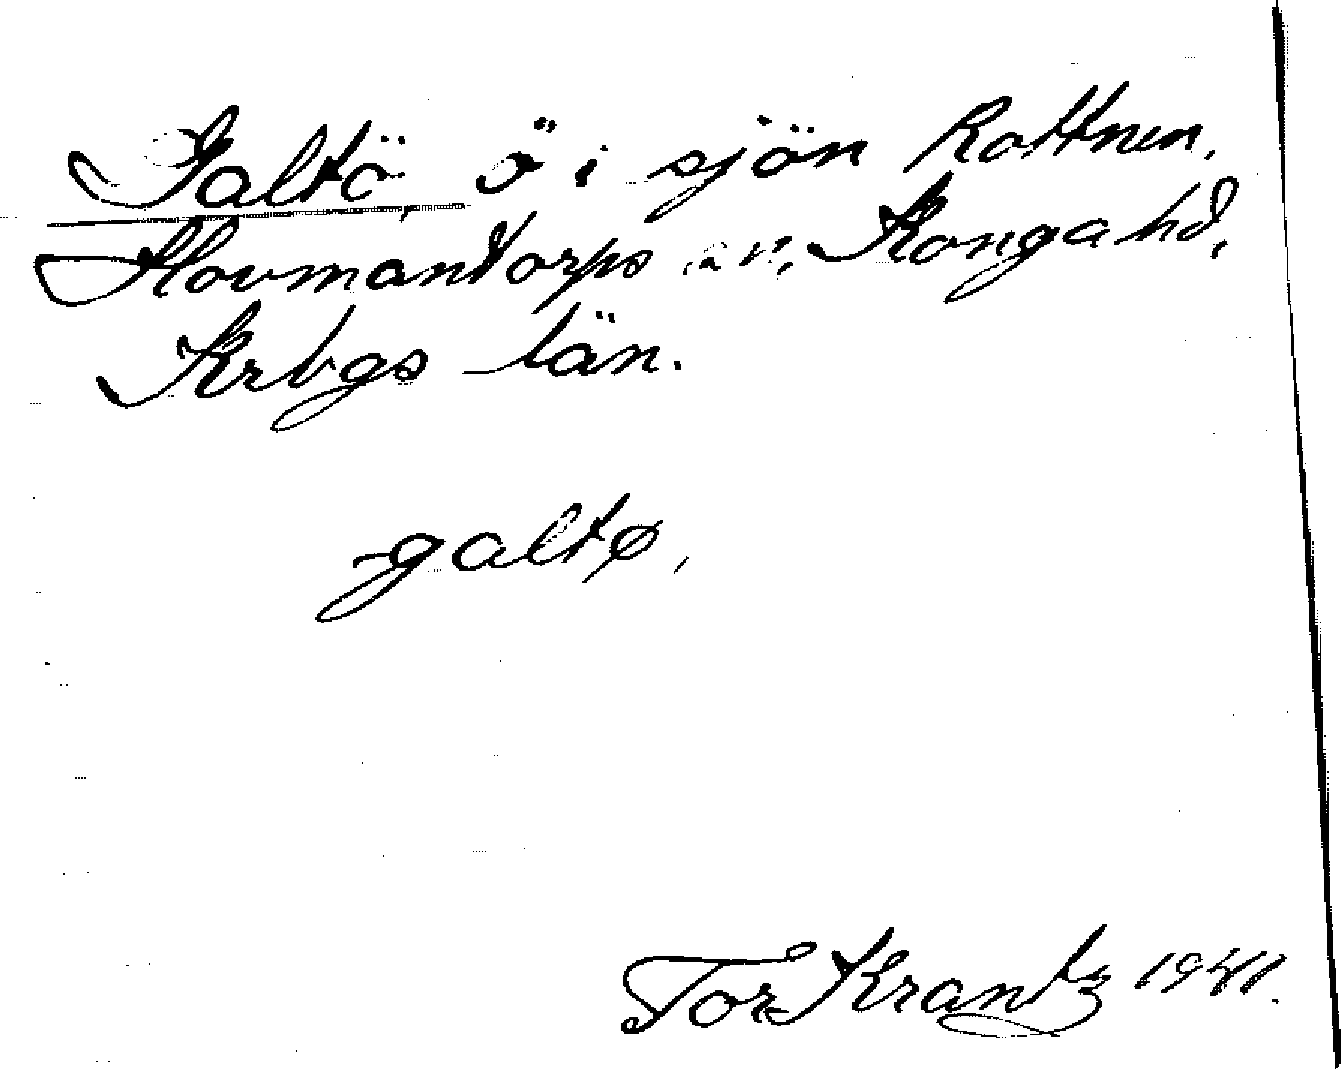 Galtö, ö i sjön Rottnen,
Hovmantorps sn, Konga hd,
Krbgs län.
galtø,
Tor Krantz 1941.